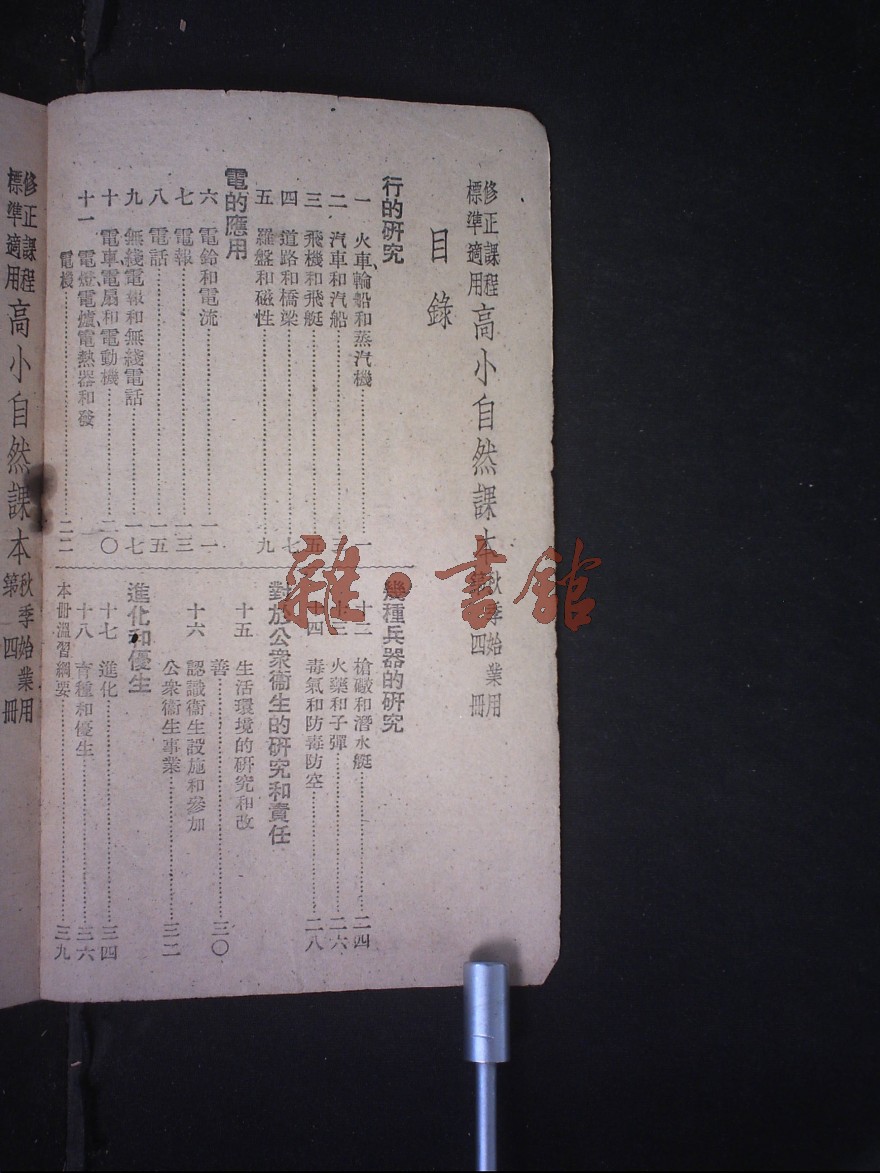 修正課程標準適用 高小自然課本 秋季始業用 第四冊
目錄
行的研究
一 火車、輪船和蒸汽機……一
二 汽車和汽船……
三 飛機和飛艇……五
四 道路和橋梁……七
五 羅盤和磁性……九
電的應用
六 電鈴和電流……一一
七 電報……一三
八 電話……一五
九 無綫電報和無綫電話……一七
十 電車、電扇和電動機……二〇
十一 電燈、電爐、電熱器和發
電機……二二
幾種兵器的研究
十二 槍礮和潛水艇……二四
十三 火藥和子彈……二六
十四 毒氣和防毒防空……二八
對於公衆衞生的研究和責任
十五 生活環境的研究和改
善……三〇
十六 認識衞生設施和參加
公衆衞生事業……三二
進化和優生
十七 進化……三四
十八 育種和優生……三六
本冊溫習綱要……三九
修正課程標準適用 高小自然課本 秋季始業用 第四冊
雜·書館